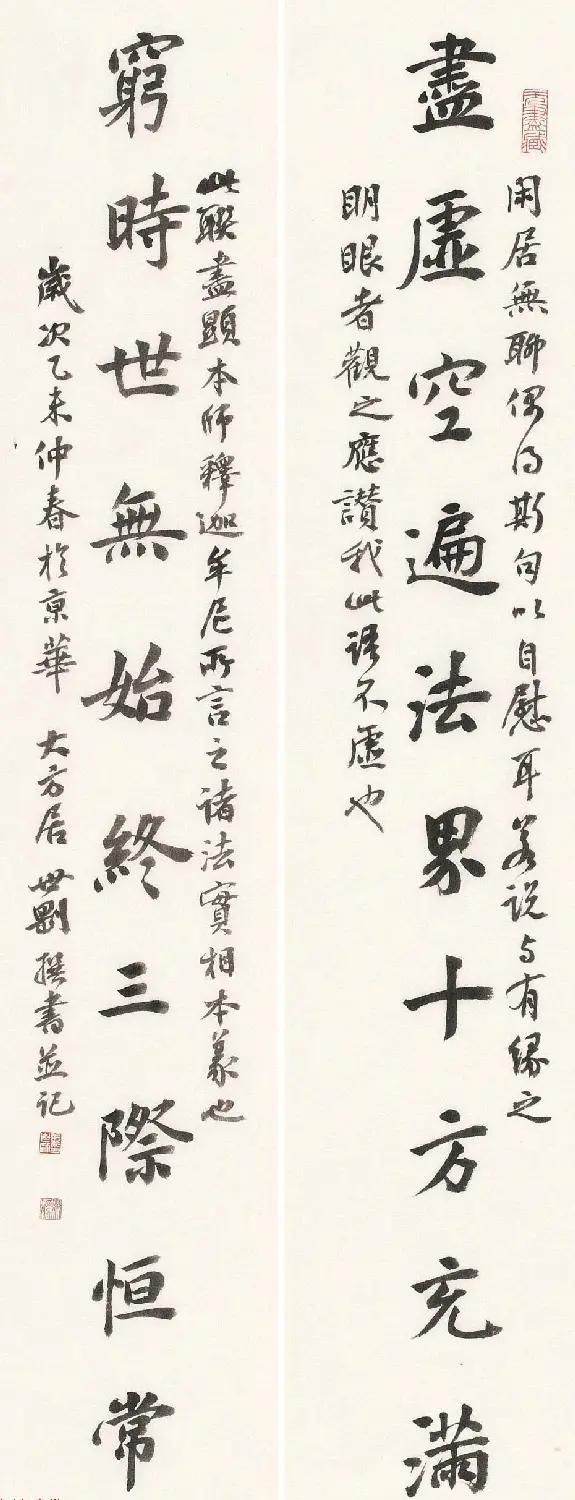 閑居無聊偶得斯句以自慰耳若説与有緣之
盡虛空遍法界十方充滿
明眼者觀之應讚我此語不虛也
此聯盡顯本师釋迦牟尼所言之诸法實相本義也
窮時世無始終三際恒常
歲次乙未仲春於京華 大方居 世剛 撰書並记